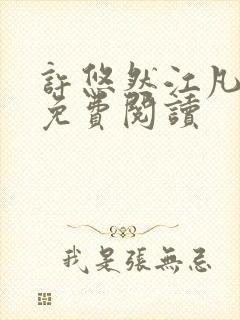 許悠然江凡
免費閱讀
我是張無忌